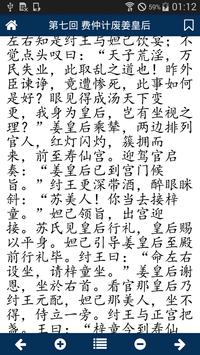 59% 01:12
第七回 费仲计废姜皇后
左右知是纣王与妲己饮宴;不
觉点头叹曰:“天子荒淫,万
民失业,此取乱之道也!昨外
臣谏诤,竟遭惨死,此事如何
是好!眼见得成汤天下变
更,我身为皇后,岂有坐视之
理?”姜皇后乘辇,两边排列
宫人,红灯闪灼,簇拥而
来,前至寿仙宫。迎驾官启
奏:“姜皇后已到宫门候
旨。”纣王更深带酒,醉眼眯
斜:“苏美人!你当去接梓
童。”妲己领旨,出宫迎
接。苏氏见皇后行礼,皇后赐
以平身。妲己引导姜皇后至殿
前行礼毕。纣王曰:“命左右
设坐,请梓童坐。”姜皇后谢
恩,坐于右首。看官那姜后乃
纣王元配,妲己乃美人,坐不
得,侍立一旁。纣王与正宫把
盏。王曰:“梓童今到寿仙